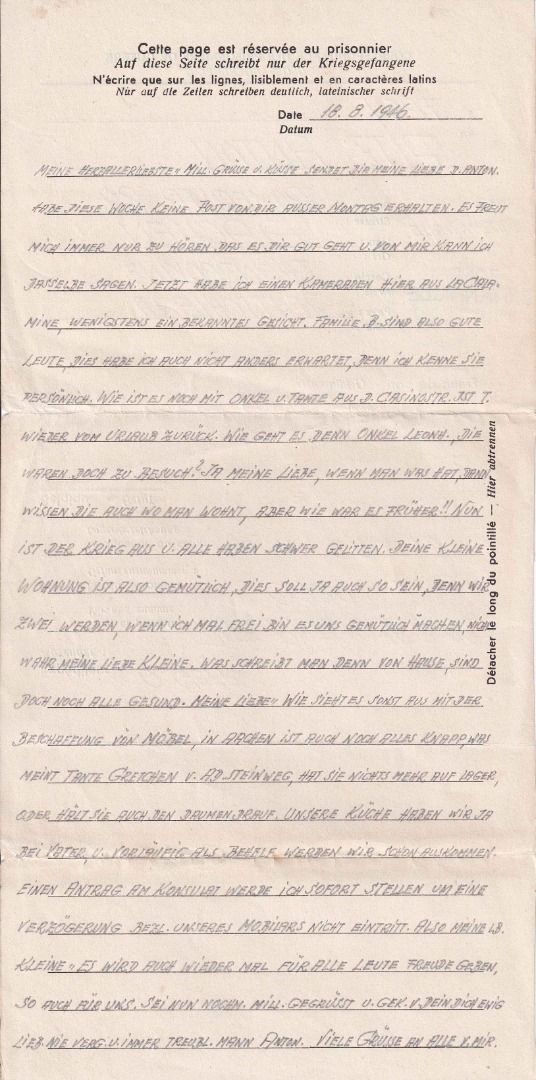 Cette page est réservée au prisonnier
Auf diese Seite schreibt nur der Kriegsgefangene
N'écrire que sur les lignes, lisiblement et en caractères latins
Nur auf die Zeilen schreiben deutlich, lateinischer schrift
Date 18. 8. 1946.
Datum
MEINE HERZALLERLIEBSTE" MILL. GRÜSSE U. KÜSSE SENDET DIR MEINE LIEBE D. ANTON.
HABE DIESE WOCHE KEINE POST VON DIR AUSSER MONTAG ERHALTEN. ES FREUT
MICH IMMER NUR ZU HÖREN DAS ES DIR GUT GEHT U. VON MIR KANN ICH
DASSELBE SAGEN. JETZT HABE ICH EINEN KAMERADEN HIER AUS LA CALA-
MINE, WENIGSTENS EIN BEKANNTES GESICHT. FAMILIE B. SIND ALSO GUTE
LEUTE, DIES HABE ICH AUCH NICHT ANDERS ERWARTET, DENN ICH KENNE SIE
PERSÖNLICH. WIE IST ES NOCH MIT ONKEL U. TANTE AUS D. CASINOSTR. IST T.
WIEDER VOM URLAUB ZURÜCK. WIE GEHT ES DENN ONKEL LEONH., DIE
WAREN DOCH ZU BESUCH? JA MEINE LIEBE, WENN MAN WAS HAT, DANN
WISSEN DIE AUCH WO MAN WOHNT, ABER WIE WAR ES FRÜHER!! NUN
IST DER KRIEG AUS U. ALLE HABEN SCHWER GELITTEN. DEINE KLEINE
WOHNUNG IST ALSO GEMÜTLICH, DIES SOLL JA AUCH SO SEIN, DENN WIR
ZWEI WERDEN, WENN ICH MAL FREI BIN ES UNS GEMÜTLICH MACHEN, NICHT
WAHR MEINE LIEBE KLEINE. WAS SCHREIBT MAN DENN VON HAUSE, SIND
DOCH NOCH ALLE GESUND. MEINE LIEBE" WIE SIEHT ES SONST AUS MIT DER
BESCHAFFUNG VON MÖBEL, IN AACHEN IST AUCH NOCH ALLES KNAPP, WAS
MEINT TANTE GRETCHEN V. AD. STEINWEG, HAT SIE NICHTS MEHR AUF LAGER,
ODER HÄLT SIE AUCH DEN DAUMEN DRAUF. UNSERE KÜCHE HABEN WIR JA
BEI VATER U. VORLÄUFIG ALS BEHELF WERDEN WIR SCHON AUSKOMMEN.
EINEN ANTRAG AM KONSULAT WERDE ICH SOFORT STELLEN UM EINE
VERZÖGERUNG BEZL. UNSERES MOBILARS NICHT EINTRITT. ALSO MEINE LB.
KLEINE" ES WIRD AUCH WIEDER MAL FÜR ALLE LEUTE FREUDE GEBEN,
SO AUCH FÜR UNS. SEI NUN NOCHM. MILL. GEGRÜSST U. GEK. V. DEIN DICH EWIG
LIEB. NIE VERG. U. IMMER TREUBL. MANN ANTON. VIELE GRÜSSE AN ALLE V. MIR.
Détacher le long du pointillé — Hier abtrennen